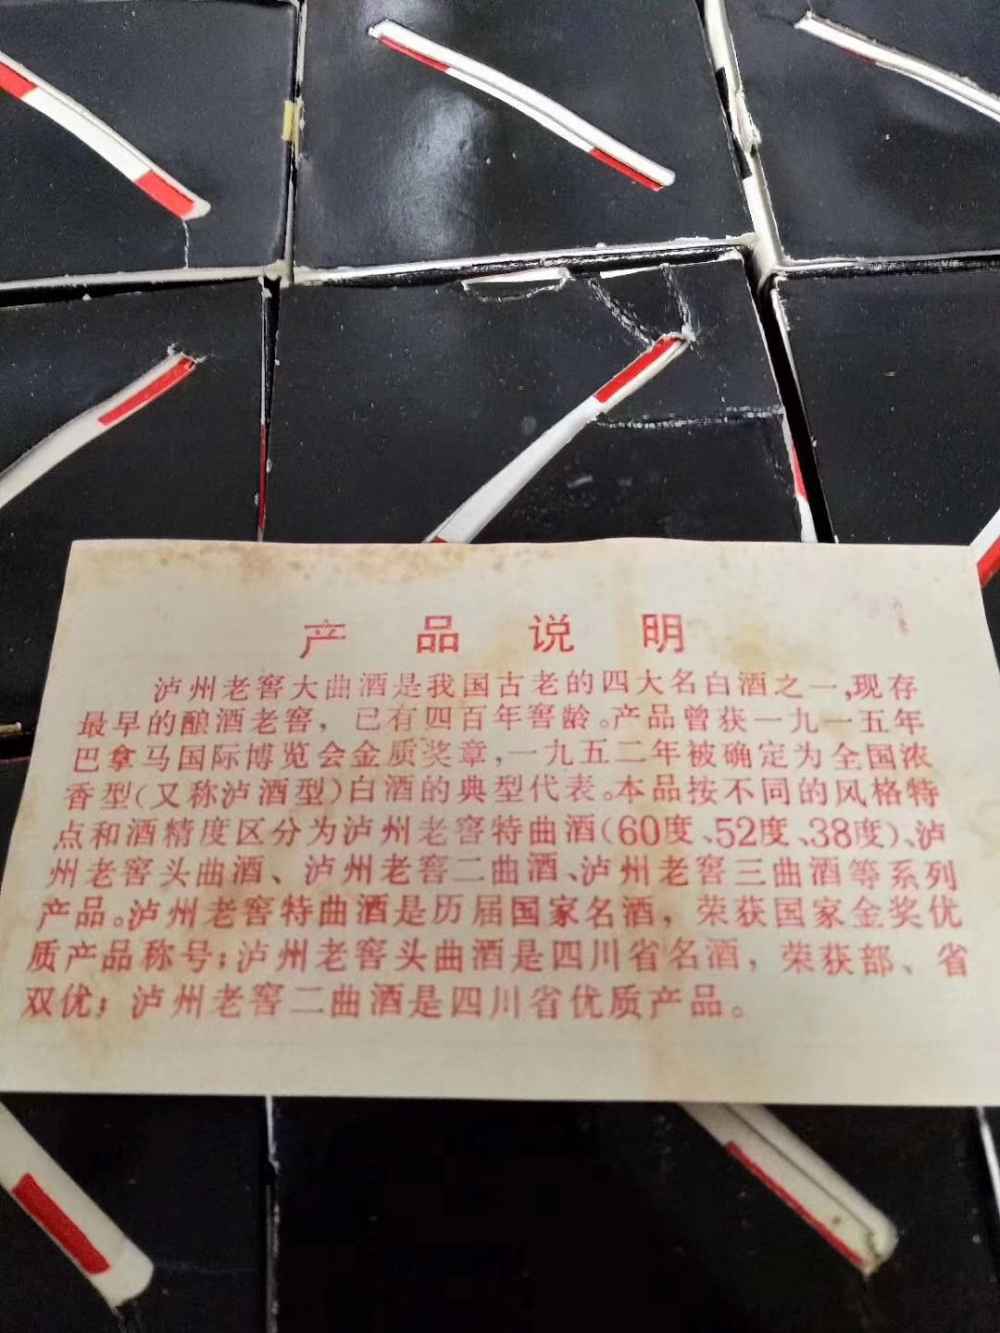 产品说明
泸州老窖大曲酒是我国古老的四大名白酒之一,现存
最早的酿酒老窖，已有四百年窖龄。产品曾获一九一五年
巴拿马国际博览会金质奖章,一九五二年被确定为全国浓
香型(又称泸酒型)白酒的典型代表。本品按不同的风格特
点和酒精度区分为泸州老窖特曲酒(60度、52度、38度)、泸
州老窖头曲酒、泸州老窖二曲酒、泸州老窖三曲酒等系列
产品。泸州老窖特曲酒是历届国家名酒，荣获国家金奖优
质产品称号;泸州老窖头曲酒是四川省名酒，荣获部、省
双优；泸州老窖二曲酒是四川省优质产品。